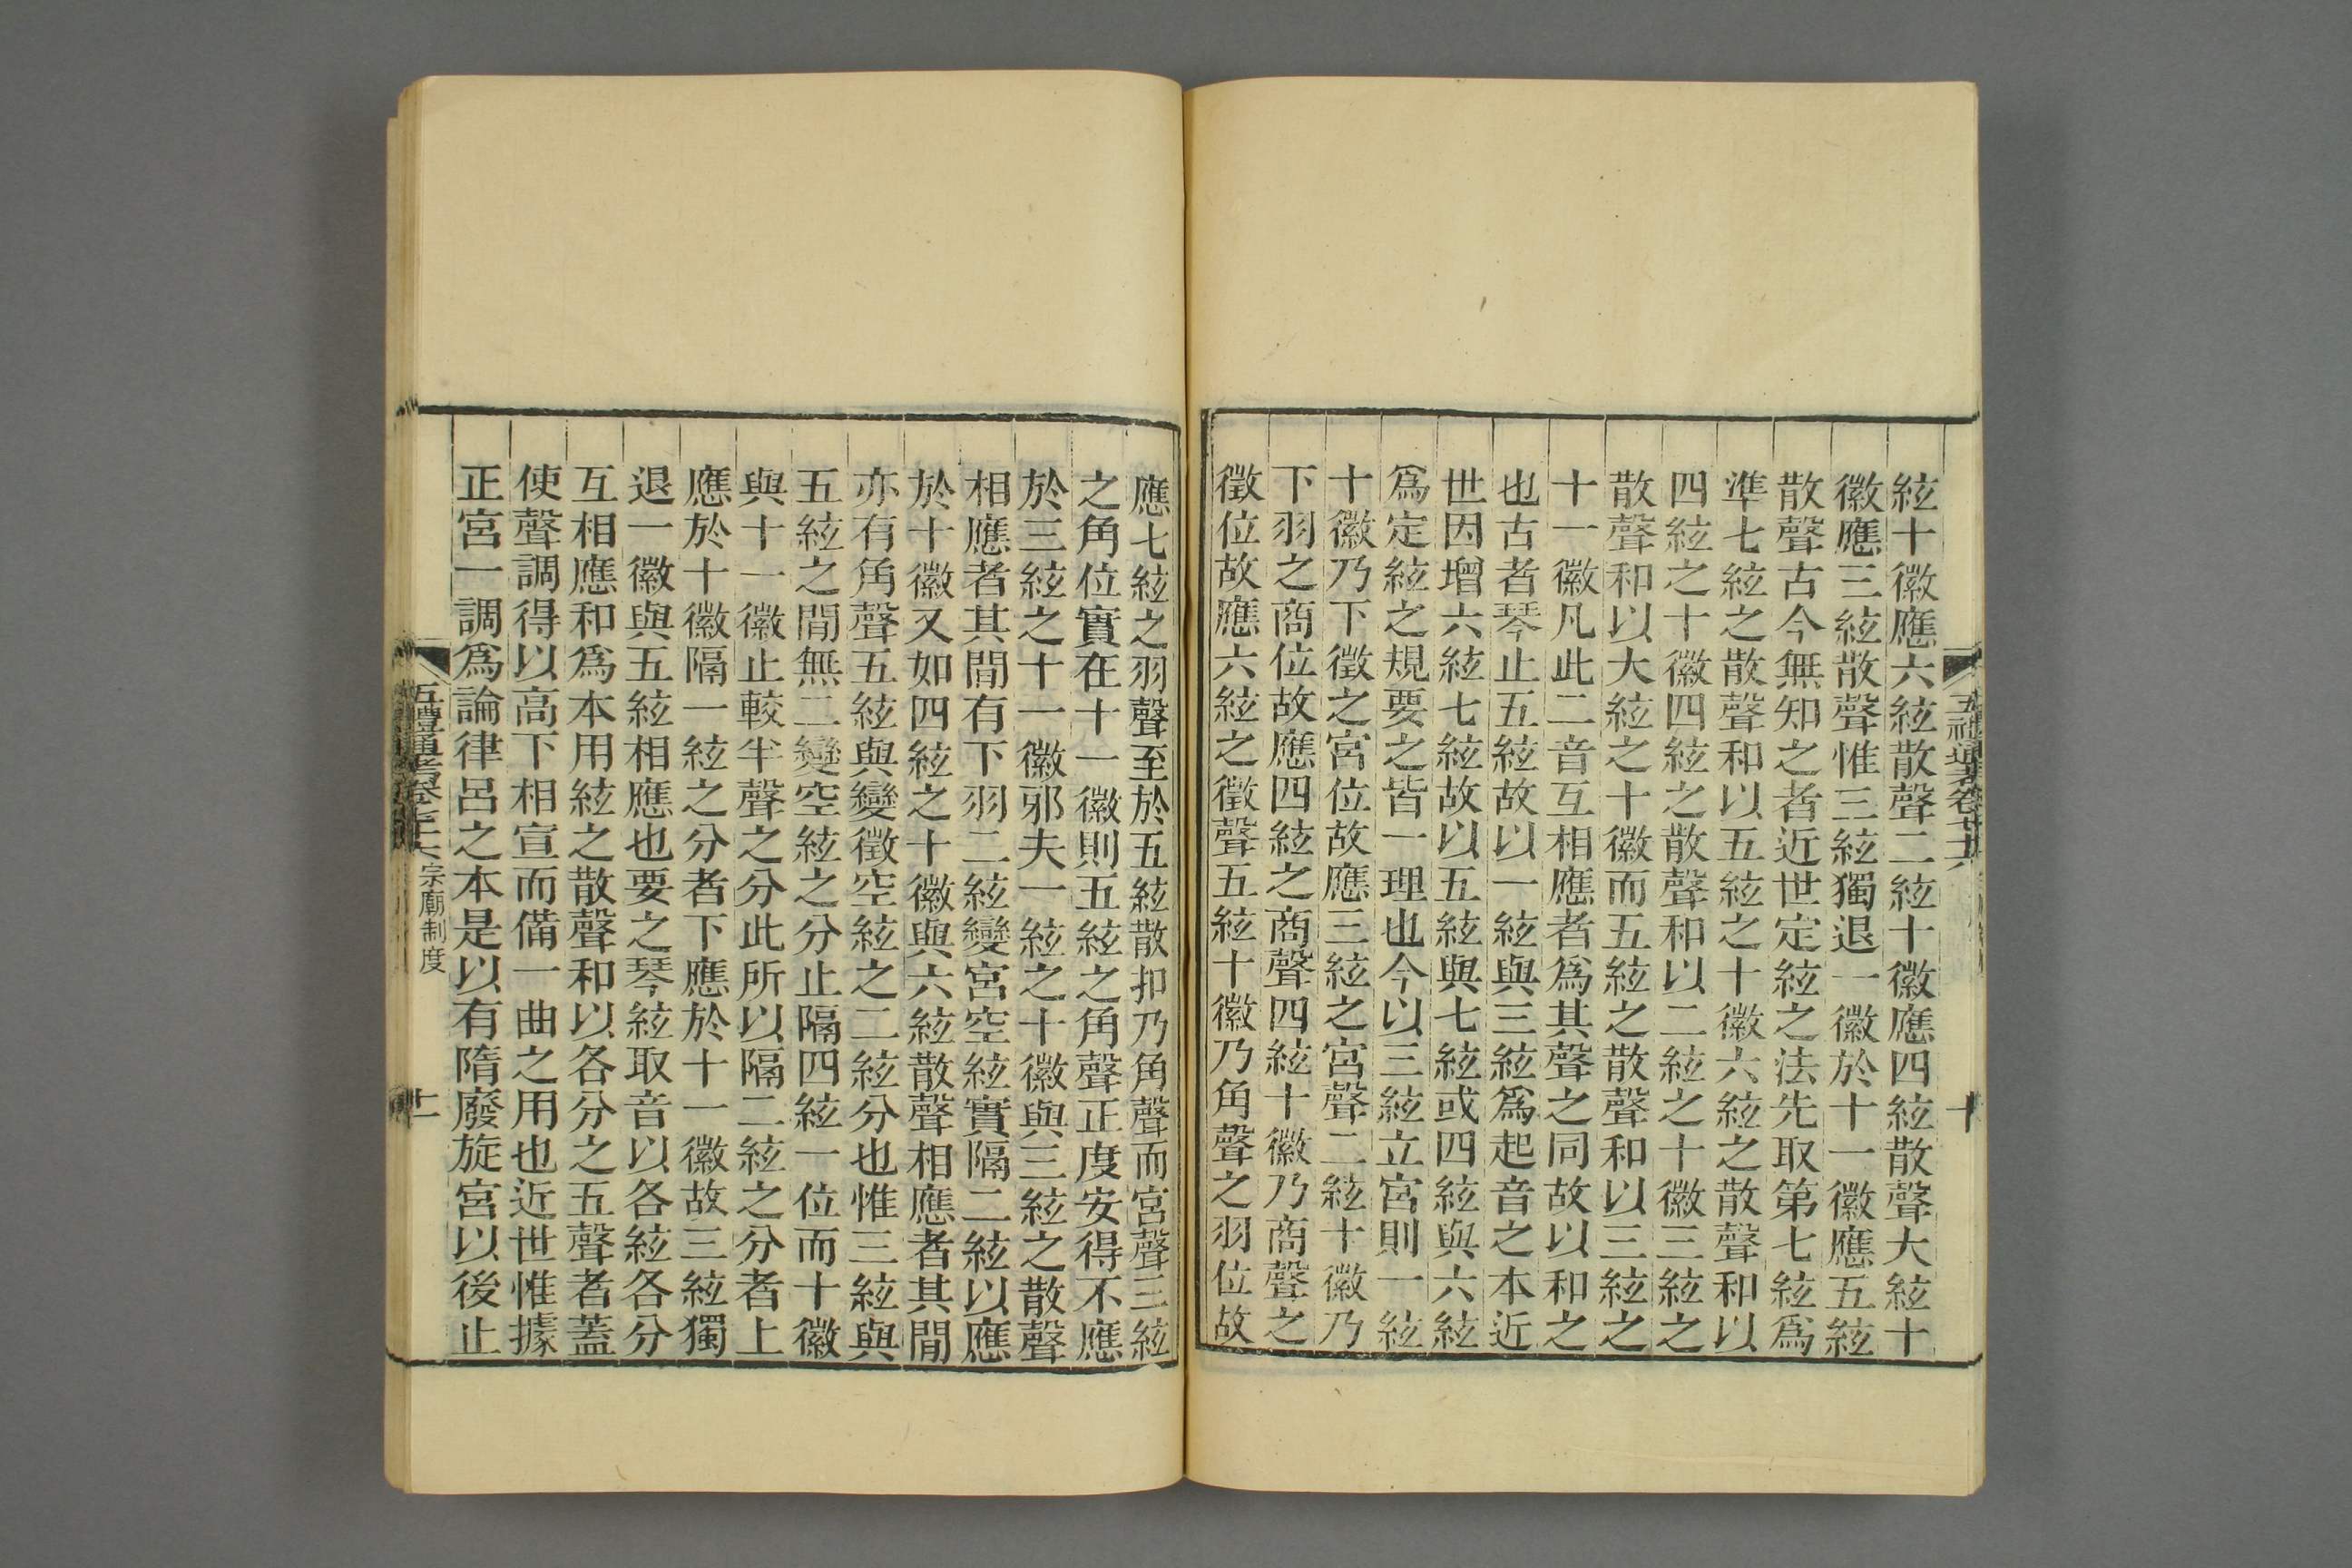 絃十徽應六絃散聲二絃十徽應四絃散聲大絃十
徽應三絃散聲惟三絃獨退一徽於十一徽應五絃
散聲古今無知之者近世定絃之法先取第七絃爲
準七絃之散聲和以五絃之十徽六絃之散聲和以
四絃之十徽四絃之散聲和以二絃之十徽三絃之
散聲和以大絃之十徽而五絃之散聲和以三絃之
十一徽凡此二音互相應者爲其聲之同故以和之
也古者琴止五絃故以一絃與三絃爲起音之本近
世因增六絃七絃故以五絃與七絃或四絃與六絃
爲定絃之規要之皆一理也今以三絃立宮則一絃
十徽乃下徵之宮位故應三絃之宮聲二絃十徽乃
下羽之商位故應四絃之商聲四絃十徽乃商聲之
徵位故應六絃之徵聲五絃十徽乃角聲之羽位故
十
應七絃之羽聲至於五絃散扣乃角聲而宮聲三絃
之角位實在十一徽則五絃之角聲正度安得不應
於三絃之十一徽邪夫一絃之十徽與三絃之散聲
相應者其間有下羽二絃變宮空絃實隔二絃以應
於十徽又如四絃之十徽與六絃散聲相應者其間
亦有角聲五絃與變徵空絃之二絃分也惟三絃與
五絃之間無二變空絃之分止隔四絃一位而十徽
與十一徽止較半聲之分此所以隔二絃之分者上
應於十徽隔一絃之分者下應於十一徽故三絃獨
退一徽與五絃相應也要之琴絃取音以各絃各分
互相應和爲本用絃之散聲和以各分之五聲者蓋
使聲調得以高下相宣而備一曲之用也近世惟據
正宮一調爲論律呂之本是以有隋廢旋宮以後止
宗廟制度